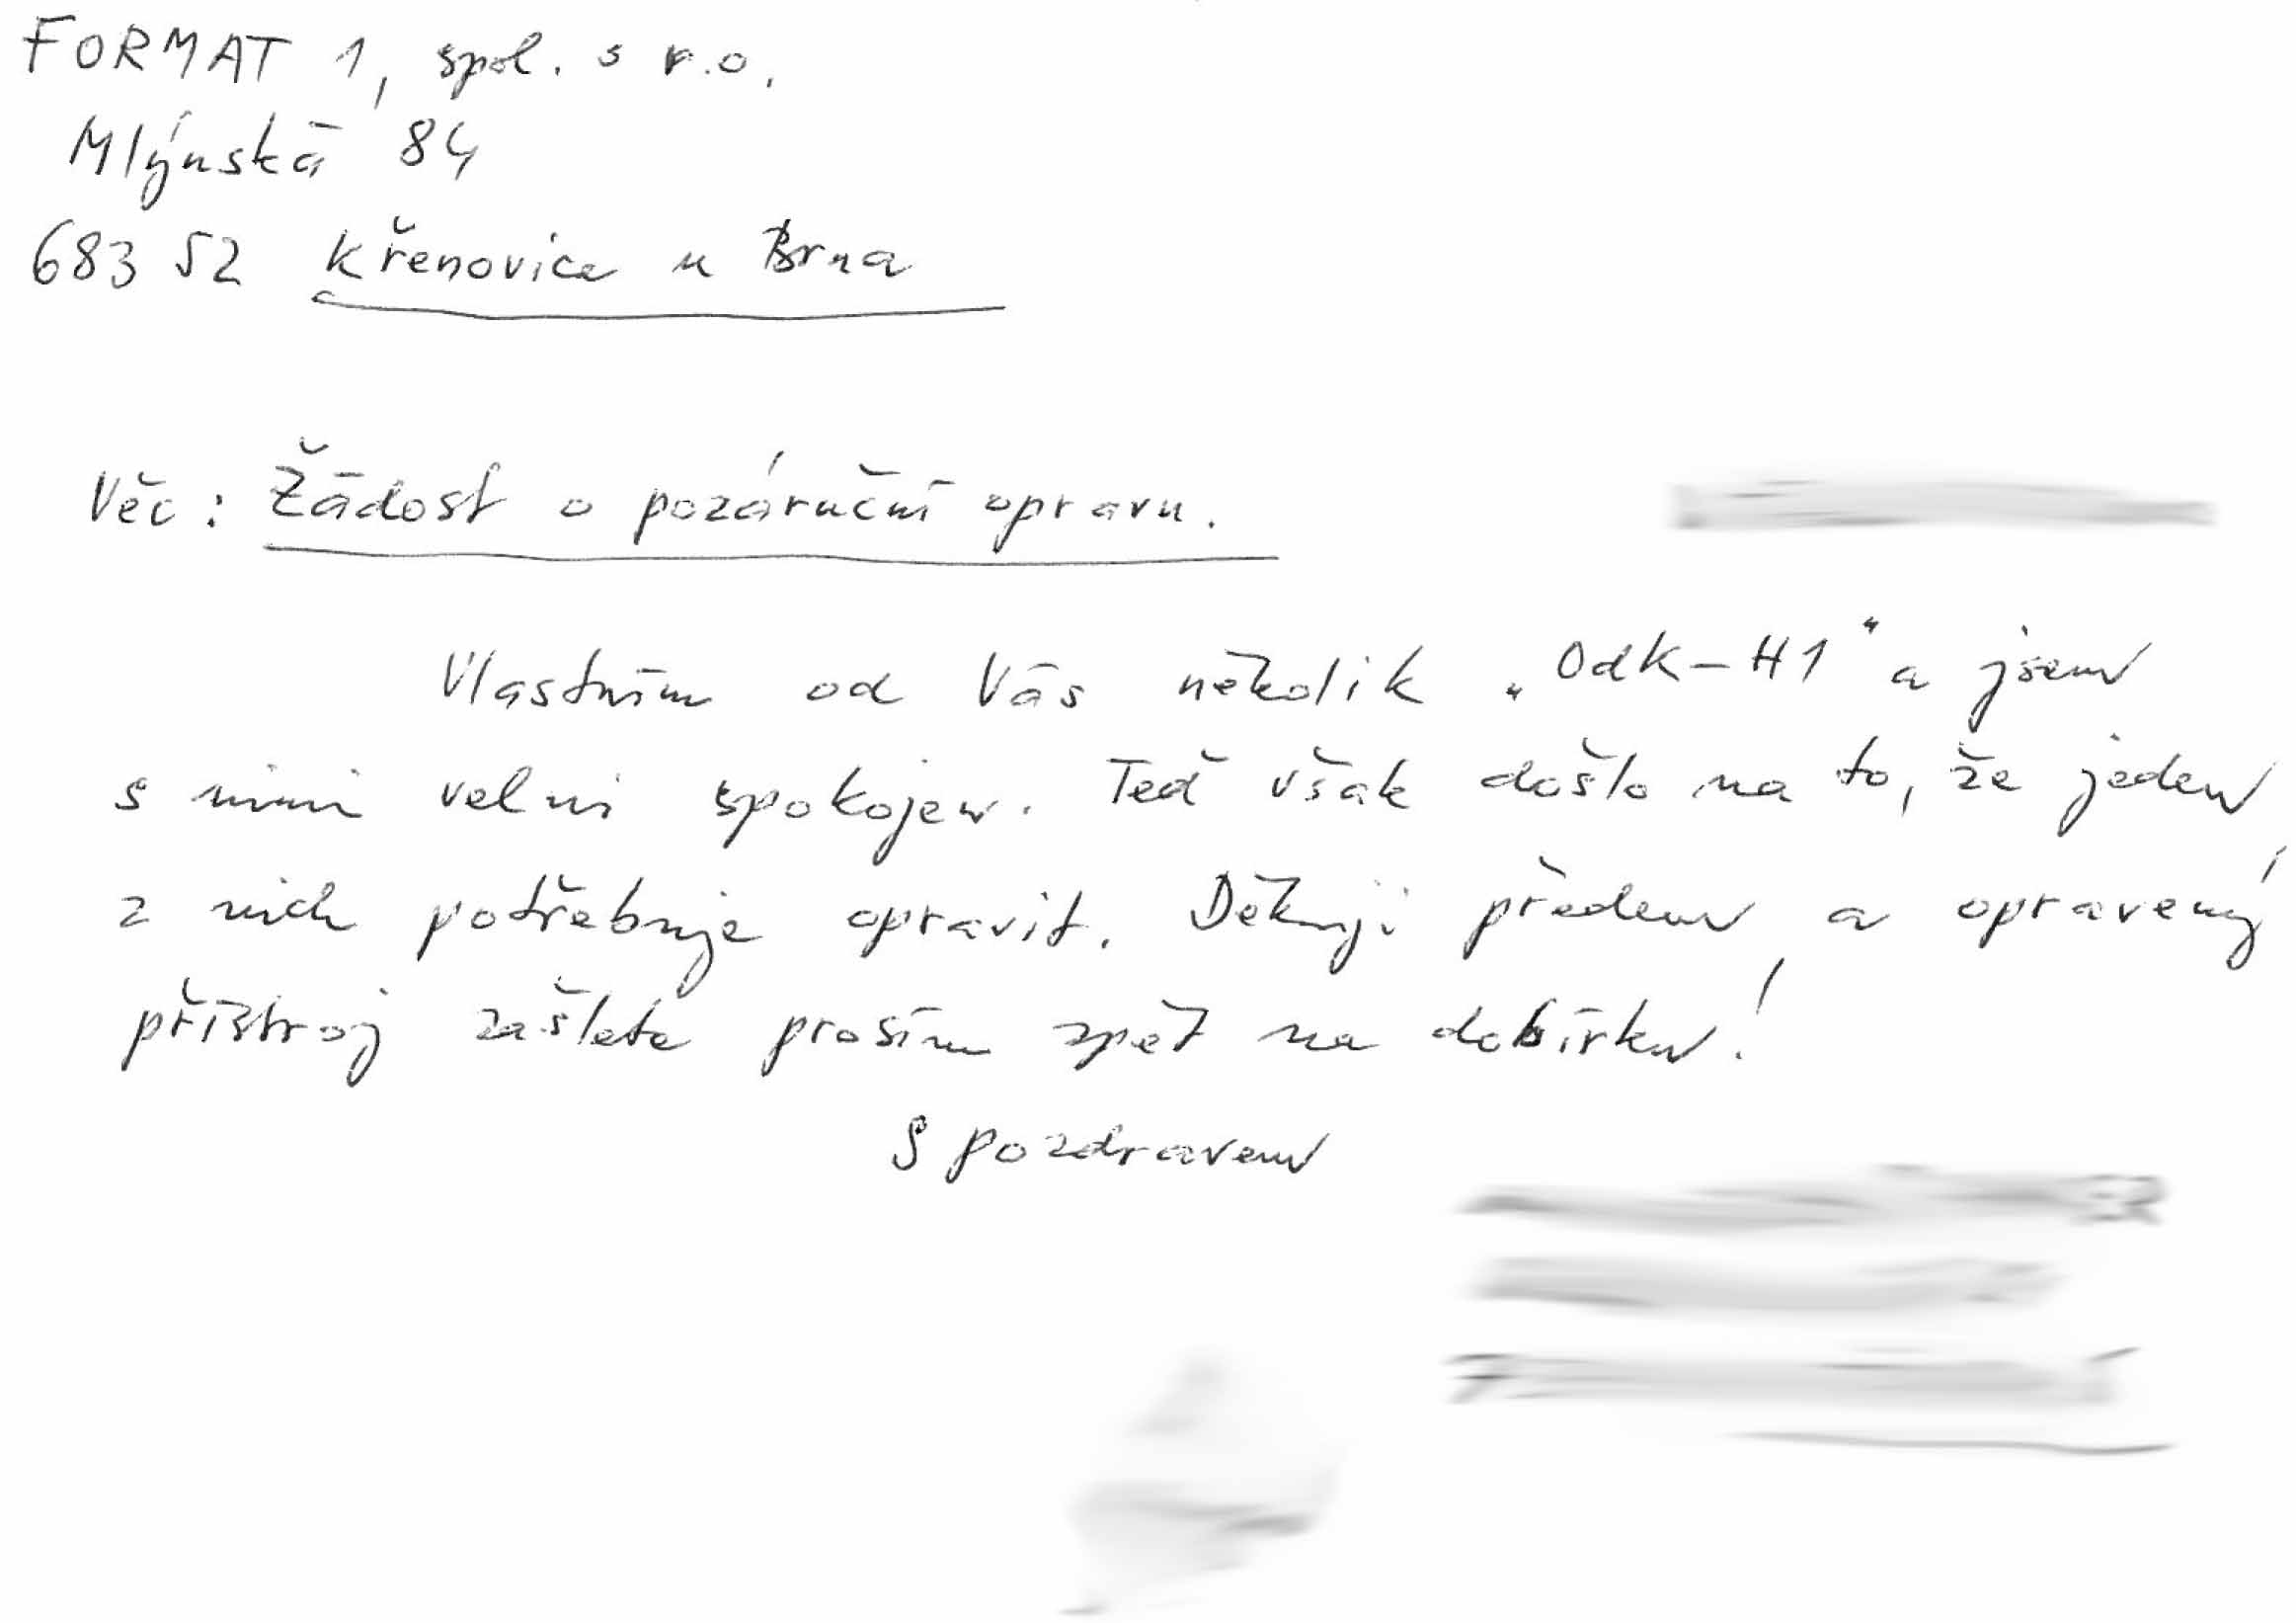 FORMAT 1, spol. s r.o.
Mlýnská 84
683 52 Křenovice u Brna
Věc: Žádost o pozáruční opravu.
Vlastním od Vás několik „OdK-H1" a jsem
s nimi velmi spokojen. Teď však došlo na to, že jeden
z nich potřebuje opravit. Děkuji předem a opravený
přístroj zašlete prosím zpět na dobírku!
S pozdravem